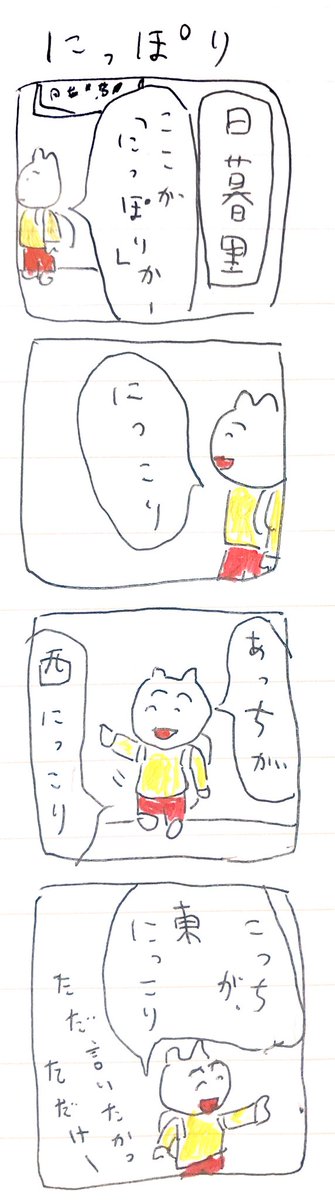 にっぽり
日暮里
日暮里
ここか
「にっぽりかー
」
にっこり
あっちが
西にっこり
こっち
が、
東
にっこり
ただ言いたかっ
ただけー